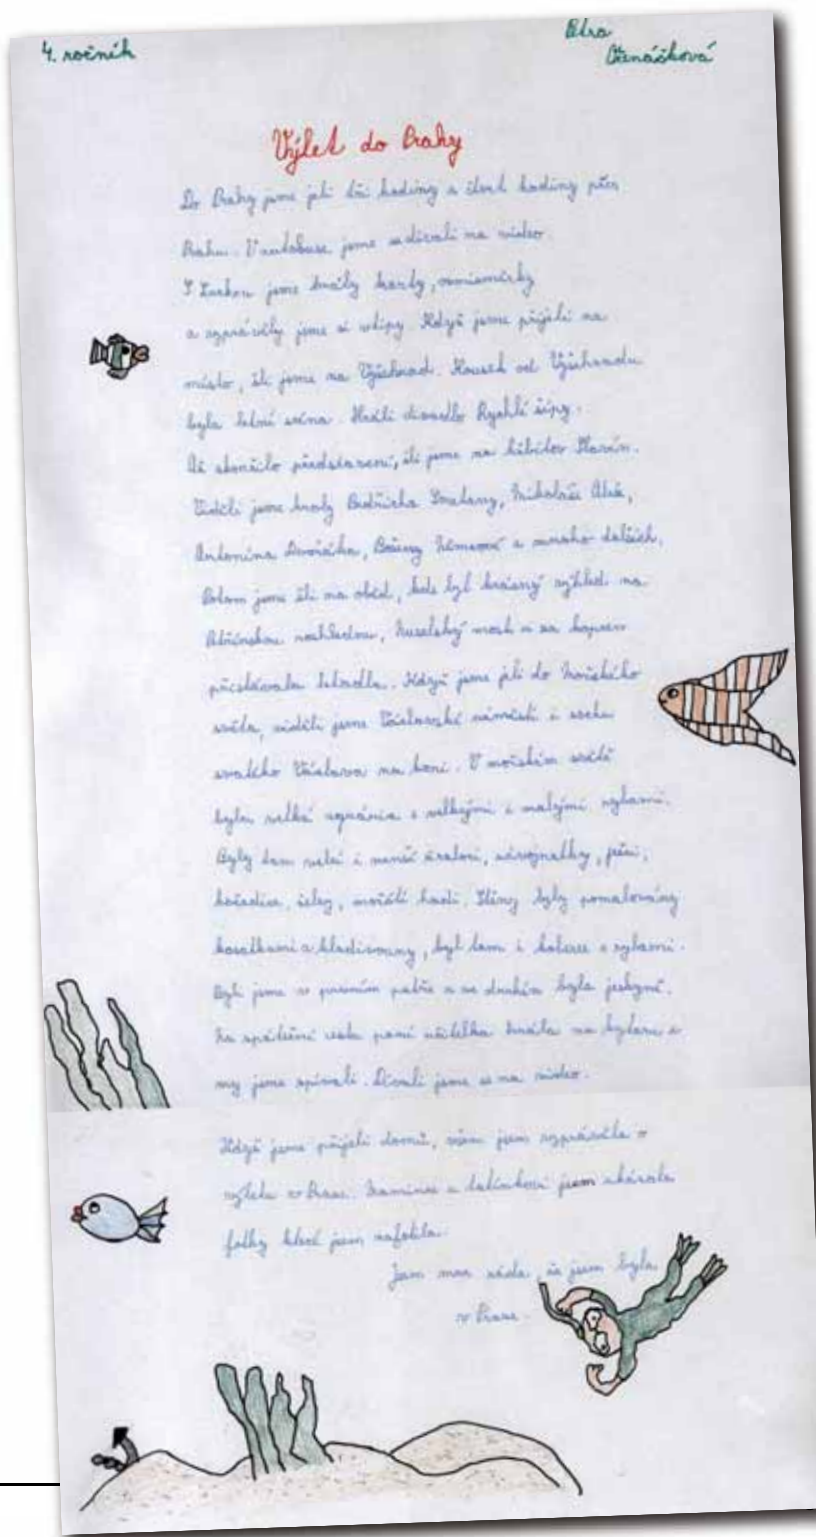 4. ročník
Petra
Otenášková
Výlet do Prahy
Do Prahy jsme jeli tři hodiny a čtvrt hodiny přes
Prahu. V autobuse jsme se dívali na video.
S Luckou jsme hrály karty, osmisměrky
a vyprávěly jsme si vtipy. Když jsme přijeli na
místo, šli jsme na Vyšehrad. Kousek od Vyšehradu
byla letní scéna. Hráli divadlo Rychlé šípy.
Až skončilo představení, šli jsme na hřbitov Slavín.
Viděli jsme hroby Bedřicha Smetany, Mikoláše Alše,
Antonína Dvořáka, Boženy Němcové a mnoho dalších.
Potom jsme šli na oběd, kde byl krásný výhled na
Petřínskou rozhlednu, Nuselský most a za kopcem
přistávala letadla. Když jsme jeli do Mořského
světa, viděli jsme Václavské náměstí i sochu
svatého Václava na koni. V mořském světě
byla velká akvária s velkými i malými rybami.
Byly tam velcí i menší žraloci, piraně,
hvězdice, želvy, mořští hadi. Stěny byly pomalovány
kosatkami a kladivouny, byl tam i koberec s rybami.
Byli jsme v prvním patře a ve druhém byla jeskyně.
Na zpáteční cestě paní učitelka hrála na kytaru a
my jsme zpívali. Dívali jsme se na video.
Když jsme přijeli domů, všem jsem vyprávěla o
výletu v Praze. Mamince a tatínkovi jsem ukázala
fotky které jsem nafotila.
Jsem moc ráda, že jsem byla
v Praze.